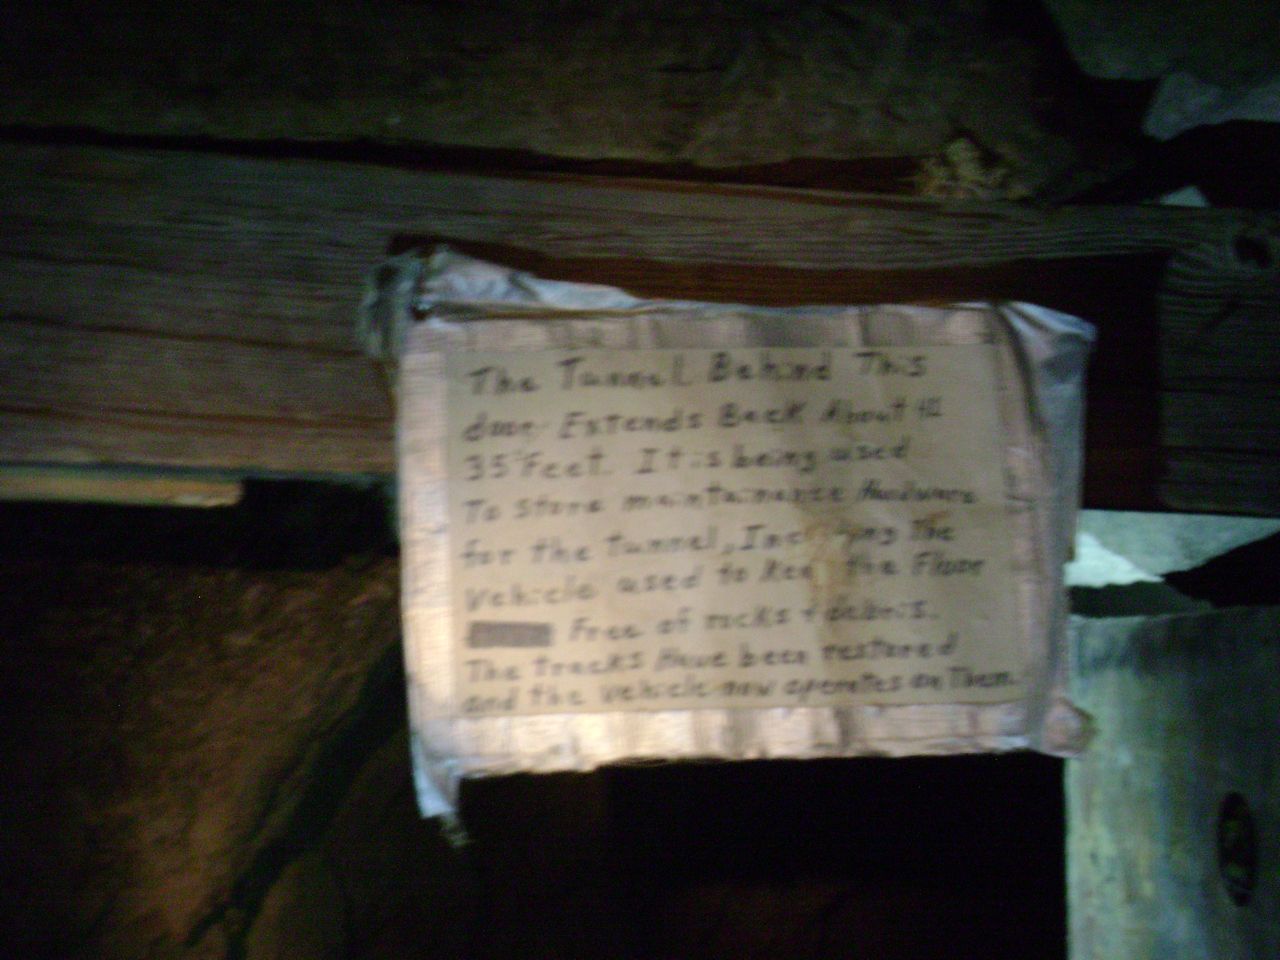 The Tunnel Behind This
door Extends Back About
35 Feet. It is being used
To store maintainance Hardware
for the tunnel, Including The
Vehicle used to Keep the Floor
Free of rocks + debris.
The tracks Have been restored
and the Vehicle now operates on Them.